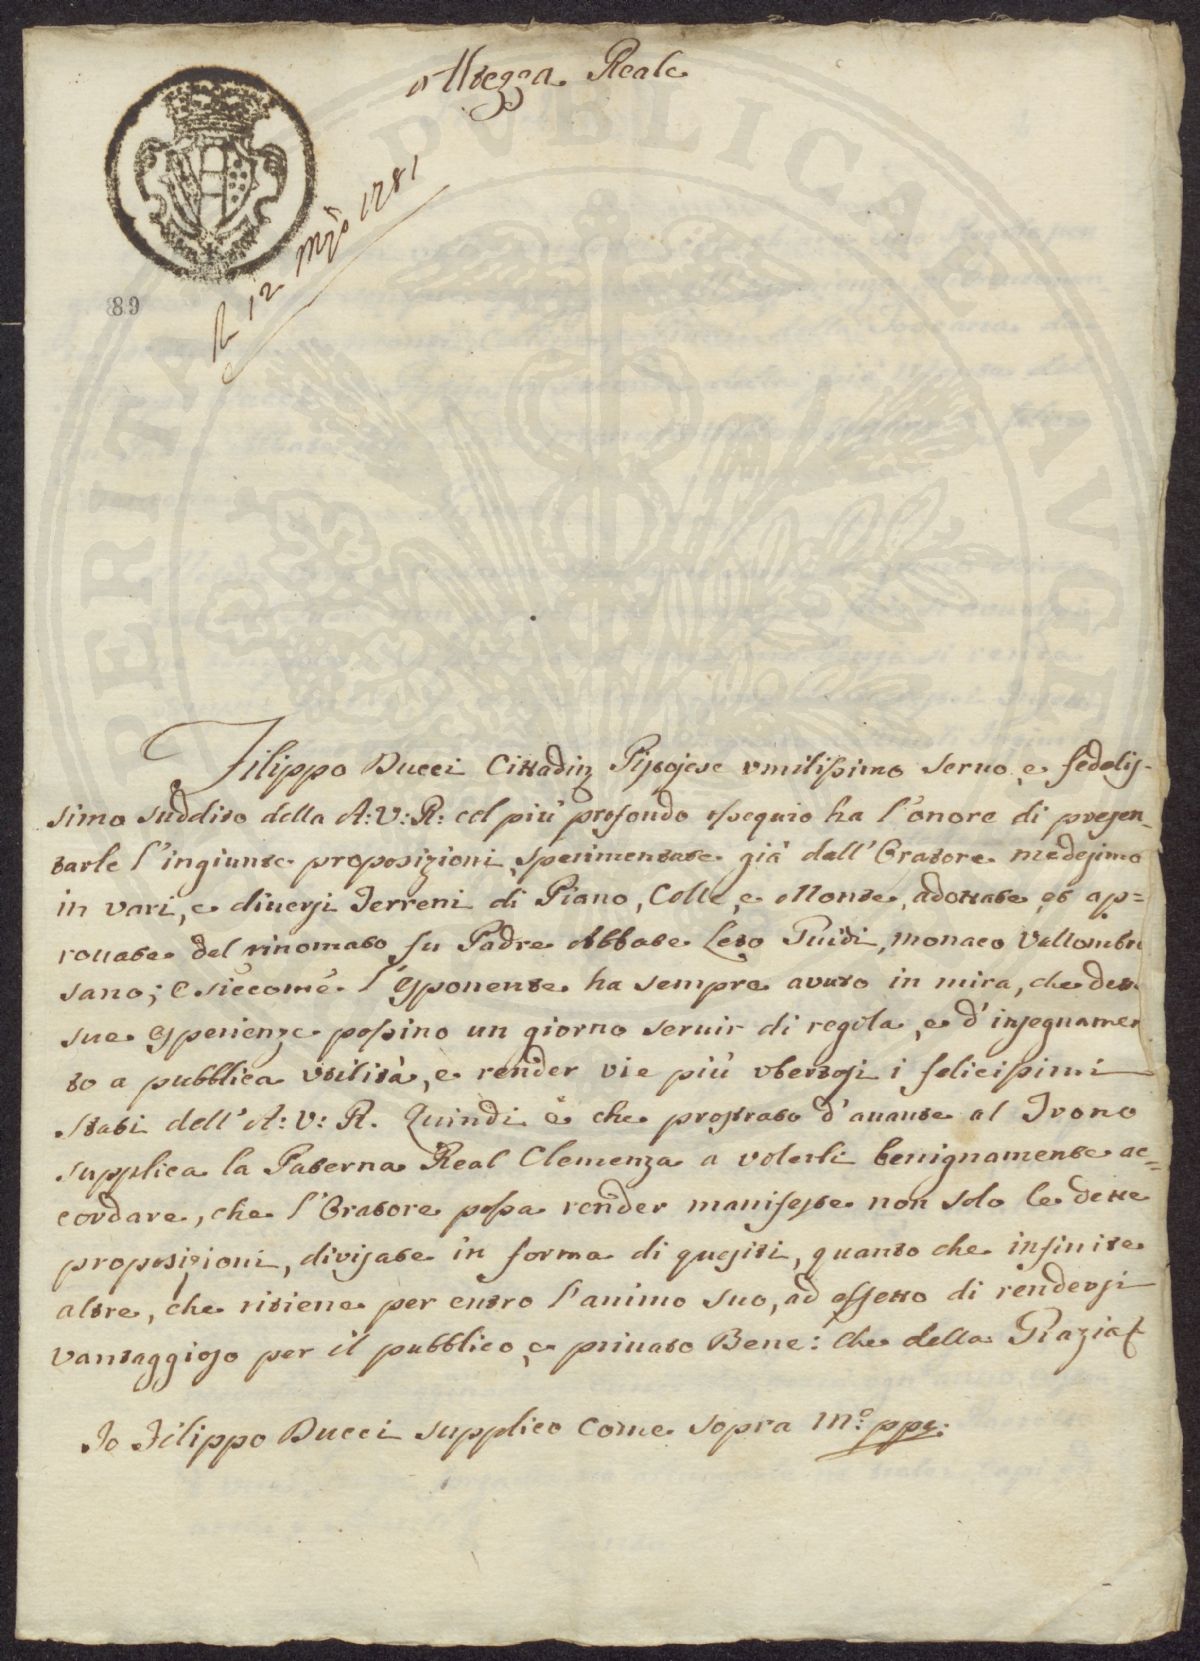 Altezza Reale
li 12 Mzo 1781
89
Filippo Ducci Cittadin Pistojese umilissimo servo, e fedelis-
simo suddito della A: V: R: col più profondo ossequio ha l'onore di presen-
tarle l'ingiunte proposizioni, sperimentate già dall'Oratore medesimo
in vari, e diversi Terreni di Piano, Colle, e Monte, adottate, et ap=
rovate dal rinomato fu Padre Abbate Leto Guidi, Monaco Vallombro
sano; e siccome l'Esponente ha sempre avuto in mira, che
sue esperienze possino un giorno servir di regola, e d'insegnamen
to a pubblica utilità, e render vie più ubertosi i felicissimi
Stati dell'A: V: R. Quindi è che prostrato d'avante al Trono
supplica la Paterna Real Clemenza a volerli benignamente ac=
cordare, che l'Oratore possa render manifeste non solo le dette
proposizioni, divisate in forma di quesiti, quanto che infinite
altre, che ritiene per entro l'animo suo, ad effetto di rendersi
vantaggioso per il pubblico, e privato Bene: Che della Grazia
Io Filippo Ducci supplico come sopra Mo: ppa:
PUBLICAE AUGE PERITA